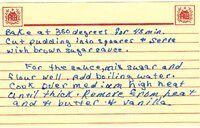 Bake at 350 degrees for 45 min.
Cut pudding into squares & serve
with brown sugar sauce.
For the sauce, mix sugar and
flour well. Add boiling water.
Cook over medium high heat
until thick. Remove from heat
and + butter & vanilla.